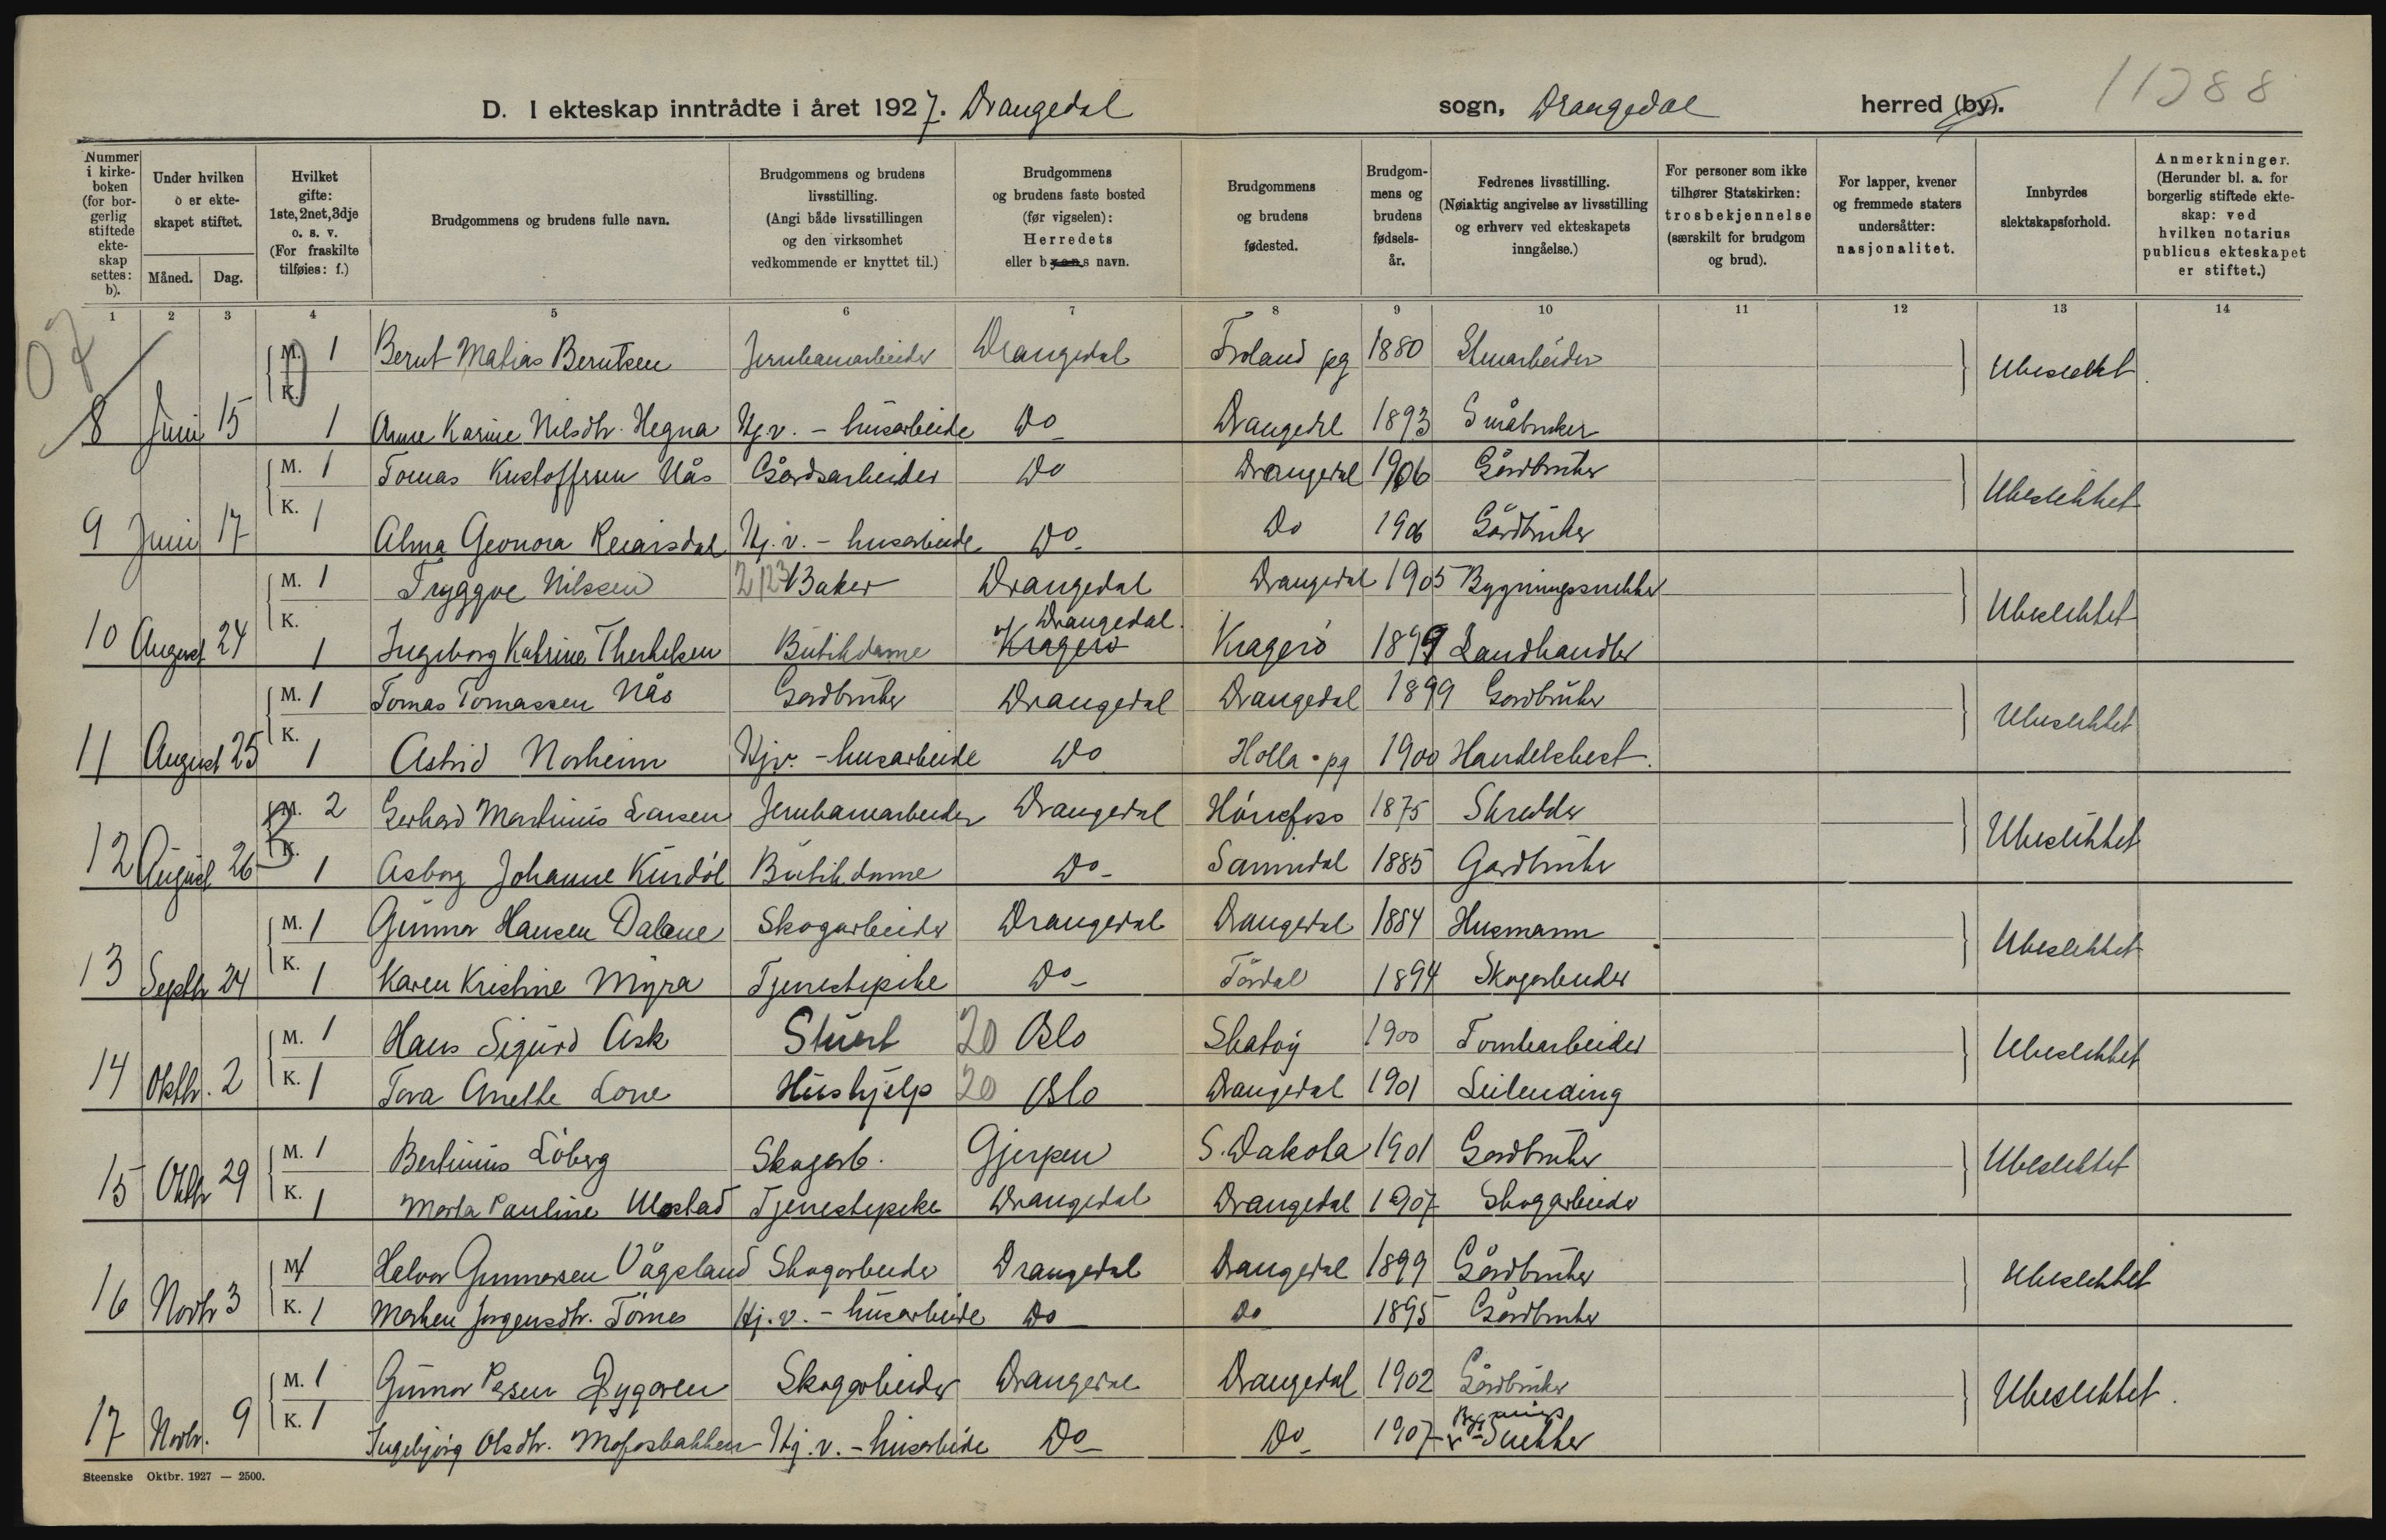 11288
D. I ekteskap inntrådte i året 1927. Drangedal sogn, Drangedal herred (by).
Nummer i kirke-boken (for bor-gerlig stiftede ekte-skap settes: b).
Under hvilken o er ekte-skapet stiftet.
Måned. Dag.
Hvilket gifte: 1ste, 2net, 3dje o. s. v. (For fraskilte tilføies: f.)
Brudgommens og brudens fulle navn.
Brudgommens og brudens livsstilling. (Angi både livsstillingen og den virksomhet vedkommende er knyttet til.)
Brudgommens og brudens faste bosted (før vigselen): Herredets eller byens navn.
Brudgommens og brudens fødested.
Brudgom-mens og brudens fødsels-år.
Fedrenes livsstilling. (Nøiaktig angivelse av livsstilling og erhverv ved ekteskapets inngåelse.)
For personer som ikke tilhører Statskirken: trosbekjennelse (særskilt for brudgom og brud).
For lapper, kvener og fremmede staters undersåtter: nasjonalitet.
Innbyrdes slektskapsforhold.
Anmerkninger. (Herunder bl. a. for borgerlig stiftede ekte-skap: ved hvilken notarius publicus ekteskapet er stiftet.)
1 2 3 4 5 6 7 8 9 10 11 12 13 14
07
M. 1 Bernt Matias Berntsen Jernbanearbeider Drangedal Froland pg 1880 Stenarbeider Ubeslektet
8 Juni 15 K. 1 Anne Karine Nilsdtr. Hegna Hj.v. - husarbeide Do Drangedal 1893 Småbruker
M. 1 Tomas Kristoffersen Nås Gårdsarbeider Do Drangedal 1906 Gårdbruker Ubeslektet
9 Juni 17 K. 1 Alma Geonora Reiarsdal Hj.v. - husarbeide Do Do 1906 Gårdbruker
M. 1 Tryggve Nilssen 2123 Baker Drangedal Drangedal 1905 Bygningssnekker Ubeslektet
Drangedal
10 August 24 K. 1 Ingeborg Katrine Therkelsen Butikdame Kragerø Kragerö 1899 Landhandler
M. 1 Tomas Tomassen Nås Gardbruker Drangedal Drangedal 1899 Gardbruker Ubeslektet
11 August 25 K. 1 Astrid Norheim Hjv. - husarbeide Do Holla pg 1900 Handelsbest.
M. 2 Gerhard Martinius Larsen Jernbanearbeider Drangedal Hönefoss 1875 Skredder Ubeslektet
12 August 26 K. 1 Asborg Johanne Kurdöl Butikdame Do Sannidal 1885 Gardbruker
M. 1 Gunnar Hansen Dalene Skogarbeider Drangedal Drangedal 1884 Husmann Ubeslektet
13 Septbr 24 K. 1 Karen Kristine Myra Tjenestepike Do Tördal 1894 Skogarbeider
M. 1 Hans Sigurd Ask Stuert 20 Oslo Skatøy 1900 Tomtearbeider Ubeslektet
14 Oktbr. 2 K. 1 Tora Anette Lone Hushjelp 20 Oslo Drangedal 1901 Leilending
M. 1 Bertinius Löberg Skogarb. Gjerpen S. Dakota 1901 Gardbruker Ubeslektet
15 Oktbr 29 K. 1 Marta Pauline Ulostad Tjenestepike Drangedal Drangedal 1907 Skogarbeider
M. 1 Halvor Gunnarsen Vågsland Skogarbeider Drangedal Drangedal 1899 Gårdbruker Ubeslektet
16 Novbr 3 K. 1 Marken Jorgensdtr. Törnes Hj.v. - husarbeide Do Do 1895 Gårdbruker
M. 1 Gunnar Persen Dygaren Skogarbeider Drangedal Drangedal 1902 Gårdbruker Ubeslektet.
Bygnings
17 Novbr. 9 K. 1 Ingebjörg Olsdtr. Mofossbakken Hj.v. - husarbeide Do Do 1907 Snekker
Steenske Oktbr. 1927 — 2500.